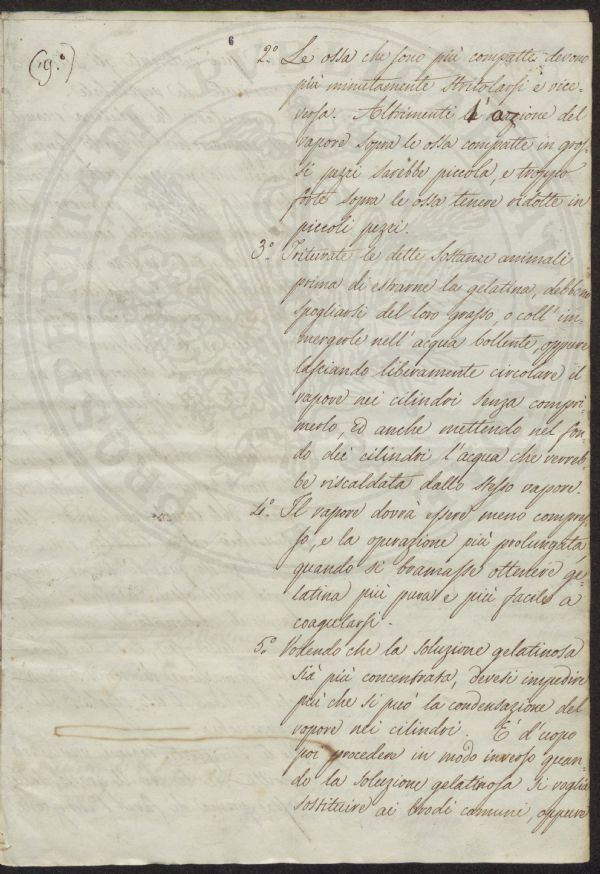 (9.°
6
2.° Le ossa che sono più compatte devono
più minutamente stritolarsi e vice-
versa. Altrimenti l'azione del
vapore sopra le ossa compatte in gros-
si pezzi sarebbe piccola, e troppo
forte sopra le ossa tenere ridotte in
piccoli pezzi.
3.° Triturate le dette sostanze animali
prima di estrarne la gelatina, debbono
spogliarsi del loro grasso, o coll'im-
mergerle nell'acqua bollente, oppure
lasciando liberamente circolare il
vapore nei cilindri senza compri-
merlo, ed anche mettendo nel fon-
do dei cilindri l'acqua che verreb-
be riscaldata dallo stesso vapore.
4.° Il vapore dovrà essere meno compres-
so, e la operazione più prolungata
quando si bramasse ottenere ge-
latina più pura e più facile a
coagularsi.
5.° Volendo che la soluzione gelatinosa
sia più concentrata, devesi impedire
più che si può la condensazione del
vapore nei cilindri. È d'uopo
poi procedere in modo inverso quan-
do la soluzione gelatinosa si voglia
sostituire ai brodi comuni, oppure